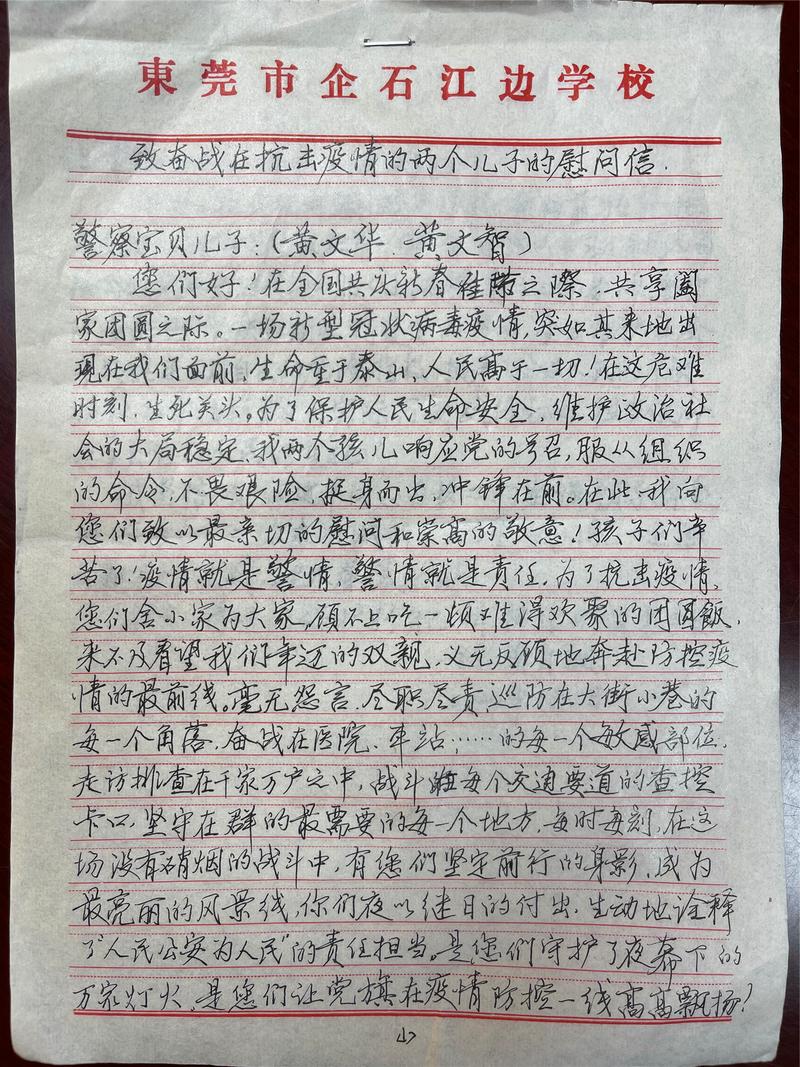 東莞市企石江边学校
致奋战在抗击疫情的两个儿子的慰问信.
警察宝贝儿子:(黄文华、黄文智)
您们好!在全国共庆新春佳节之際,共享阖
家团圆之际。一场新型冠状病毒疫情,突如其来地出
现在我们面前,生命重于泰山,人民高于一切!在这危难
时刻,生死关头。为了保护人民生命安全,维护政治社
会的大局稳定,我两个孩儿响应党的号召,服从组织
的命令,不畏艰险,挺身而出,冲锋在前。在此,我向
您们致以最亲切的慰问和崇高的敬意!孩子们辛
苦了!疫情就是警情,警情就是责任,为了抗击疫情,
您们舍小家为大家,顾不上吃一顿难得欢聚的团圆飯,
来不及看望我们年迈的双親,义无反顾地奔赴防控疫
情的最前线。毫无怨言,尽职尽责巡防在大街小巷的
每一个角落,奋战在医院、车站……的每一个敏感部位,
走访排查在千家万户之中,战斗在每个交通要道的查控
卡口,坚守在群的最需要的每一个地方,每时每刻,在这
场没有硝烟的战斗中,有您们坚定前行的身影,成为
最亮丽的风景线,你们夜以继日的付出,生动地诠释
了“人民公安为人民”的责任担当。是您们守护了夜幕下的
万家灯火,是您们让党旗在疫情防控一线高高飘扬?